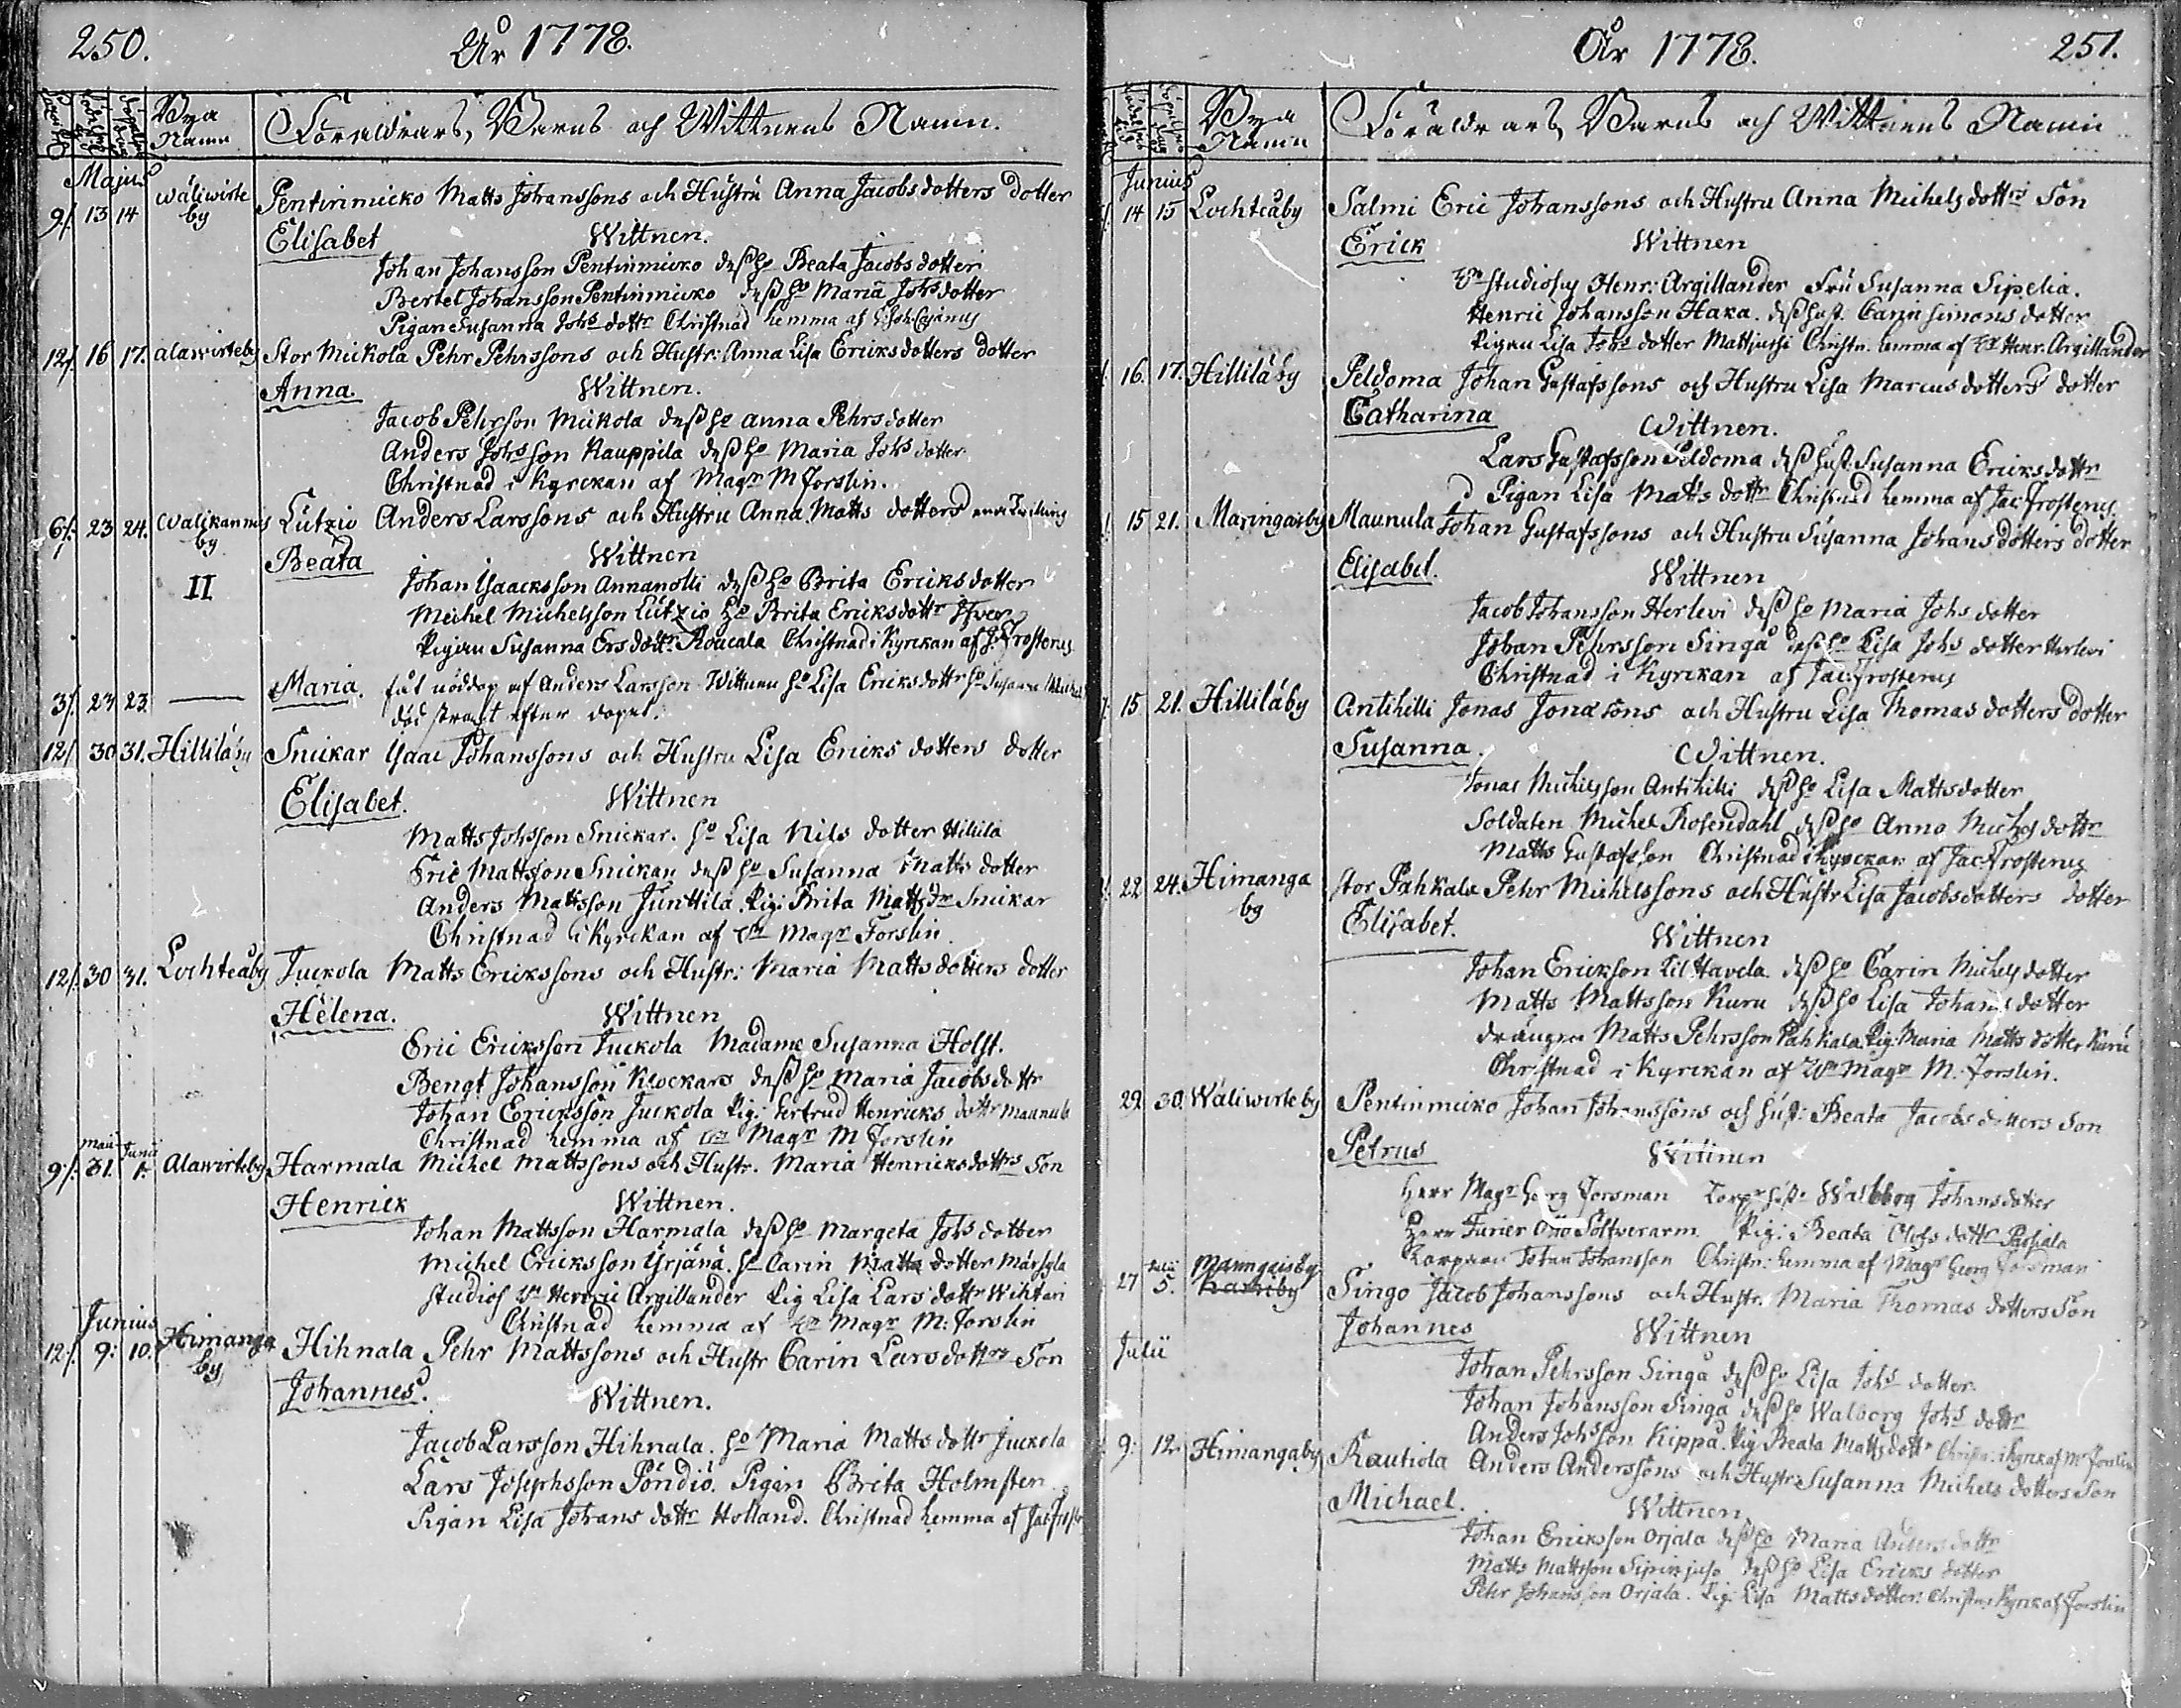 250.
År 1778.
Bya Namn
Föräldrars, Barns och Wittnens Namn.
Majus
9/. 13 14 Wäliwirte by Pentinmicko Matts Johanssons och Hustru Anna Jacobsdotters dotter
Elisabet Wittnen.
Johan Johansson Pentinmicko desß ho Beata Jacobsdotter
Bertel Johansson Pentinmicko desß ho Maria Johsdotter
Pigan Susanna Johs dottr Christnad hemma af
12/. 16 17. Alawirteby Stor Mickola Pehr Pehrssons och Hustr: Anna Lisa Ericksdotters dotter
Anna. Wittnen.
Jacob Pehrsson Mickola desß ho Anna Pehrsdotter
Anders Johsson Kauppila desß ho Maria Johs dotter
Christnad i Kyrckan af Magr M Forslin.
6/. 23 24. Walikannus by Lutzio Anders Larssons och Hustru Anna Matts dotters
Beata Wittnen
II Johan Isaacksson Annanolli desß ho Brita Ericksdotter
Michel Michelsson Lutzio ho Brita Ericksdottr
Pigan Susanna Ersdottr Roucala Christnad i Kyrckan af J. Frosterus
3/. 23 23 — Maria. fåt nöddop af Anders Larsson Wittnen ho Lisa Ericksdottr ho Susanna
död straxt efter dopet.
12/. 30 31. Hilliläby Snickar Isaac Johanssons och Hustru Lisa Ericks dotters dotter
Elisabet. Wittnen
Matts Johsson Snickar. ho Lisa Nils dotter Hillilä
Eric Mattsson Snickar desß ho Susanna Matts dotter
Anders Mattsson Junttila. Pig: Brita Matts dr Snickar
Christnad i Kyrckan af Magr Forslin.
12/. 30 31. Lochteåby Juckola Matts Erickssons och Hustr: Maria Mattsdotters dotter
Helena. Wittnen
Eric Ericksson Juckola Madame Susanna Holst.
Bengt Johansson Klockars desß ho Maria Jacobsdottr
Johan Ericksson Juckola Pig: Gertrud Henricks dottr Maunula
Christnad hemma af Magr M Forslin
Maii Junii
9/. 31. 1. Alawirteby Harmala Michel Mattssons och Hustr. Maria Henricksdottrs Son
Henrick Wittnen.
Johan Mattsson Harmala desß ho Margeta Johs dotter
Michel Ericksson Yrjänä. ho Carin Matts dotter Märsylä
Studios Henric Argillander Pig Lisa Lars dottr Wihtari
Christnad hemma af Magr M: Forslin
Junius
12/. 9: 10. Himanga by Hihnala Pehr Mattssons och Hustr Carin Larsdottrs Son
Johannes. Wittnen.
Jacob Larsson Hihnala. ho Maria Matts dottr Juckola
Lars Josephsson Pöndiö. Pigan Brita Holmsten.
Pigan Lisa Johans dottr Holland. Christnad hemma af Jac
År 1778.
251.
Bya Namn
Föräldrars, Barns och Wittnens Namn
Junius
14 15 Lochteåby Salmi Eric Johanssons och Hustru Anna Michelsdottrs Son
Erick Wittnen
Studiosus Henr: Argillander Fru Susanna Sipelia.
Henric Johansson Haka. desß hust. Carin Simons dotter
Pigan Lisa Johs dotter Mattjussi Christn. hemma af Henr. Argillander
16. 17. Hilliläby Peldoma Johan Gustafssons och Hustru Lisa Marcusdotters dotter
Catharina Wittnen.
Lars Gustafsson Peldoma desß hust. Susanna Ericksdottr
Pigan Lisa Matts dottr Christnad hemma af Jac. Frosterus
15 21. Maringaisby Maunula Johan Gustafssons och Hustru Susanna Johansdotters dotter
Elisabet. Wittnen
Jacob Johansson Herlevi desß ho Maria Johs dotter
Johan Pehrsson Singa desß ho Lisa Johs dotter Herlevi
Christnad i Kyrckan af Jac: Frosterus
15 21. Hilliläby Antihilli Jonas Jonæsons och Hustru Lisa Thomas dotters dotter
Susanna. Wittnen.
Jonas Michelsson Antihilli desß ho Lisa Mattsdotter
Soldaten Michel Rosendahl desß ho Anna Michelsdottr
Matts Gustafsson Christnad i Kyrckan af Jac. Frosterus
22 24. Himanga by Stor Pahkala Pehr Michelssons och Hustr Lisa Jacobsdotters dotter
Elisabet. Wittnen
Johan Erickson Lil Havela desß ho Carin Michels dotter
Matts Mattsson Kuru desß ho Lisa Johans dotter
Drängen Matts Pehrsson Pahkala Pig: Maria Matts dotter Kuru
Christnad i Kyrckan af Magr M. Forslin.
29 30. Wäliwirteby Pentinmicko Johan Johanssons och Hust: Beata Jacobsdotters Son
Petrus Wittnen
Herr Magr Georg Forsman Walborg Johansdotter
Herr Furier Otto Pig: Beata Olofs dottr
Johan Johansson Christn: hemma af Magr Georg Forsman
27 Julii 5. Maringaisby Karhiby Singo Jacob Johanssons och Hustr. Maria Thomas dotters Son
Johannes Wittnen
Julii
Johan Pehrsson Singa desß ho Lisa Johs dotter
Johan Johansson Singa desß ho Walborg Johs dottr
Anders Johsson Kippa. Pig Beata Mattsdottr Christn. i Kyrck af M Forslin
9: 12. Himangaby Rautiola Anders Anderssons och Hustr: Susanna Michels dotters Son
Michael. Wittnen
Johan Ericksson Orjala desß ho Maria Anders dottr
Matts Mattsson desß ho Lisa Ericks dotter
Pehr Johansson Orjala. Pig: Lisa Matts dotter: Christn. i Kyrck af Forslin